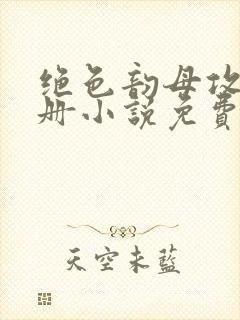 绝色韵母攻
册小説免費
天空未藍